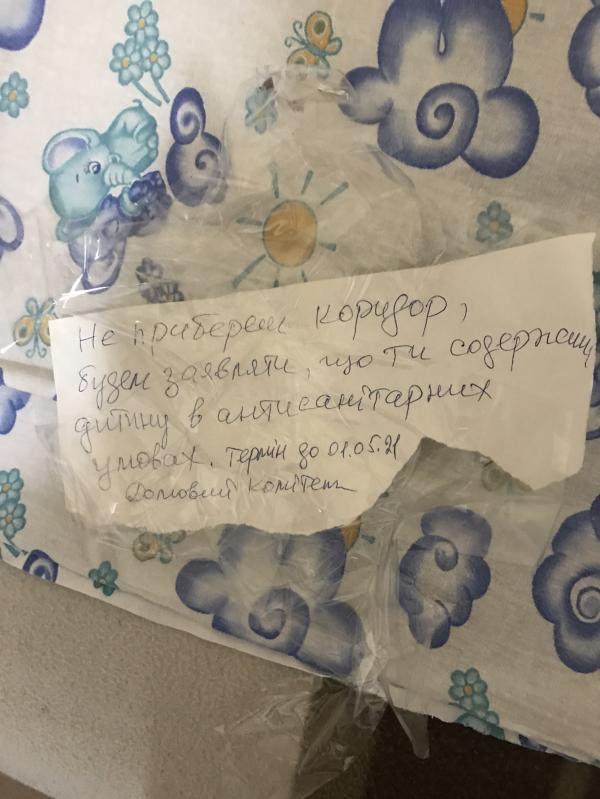 Не прибереш коридор,
будем заявляти, що ти содержиш
дитину в антисанітарних
умовах. Термін до 01.05.21
Домовий комітет